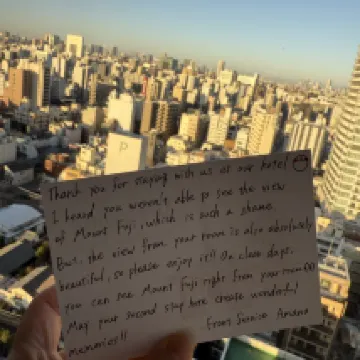 Thank you for staying with us at our hotel!
I heard you weren't able to see the view
of Mount Fuji, which is such a shame.
But, the view from your room is also absolutely
beautiful, so please enjoy it!! On clear days,
you can see Mount Fuji right from your room
May your second stay here create wonderful
memories!!
From Service
P